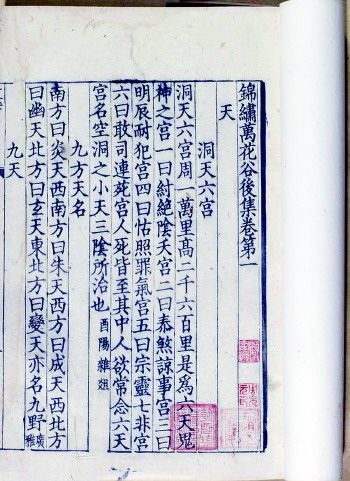 錦繡萬花谷後集卷第一
天
洞天六宮
洞天六宮周一萬里高二千六百里是爲六天鬼
神之宮一曰紂絶陰天宮二曰泰煞諒事宮三曰
明辰耐犯宮四曰怙照罪氣宮五曰宗靈七非宮
六曰敢司連宛宮人死皆至其中人欲常念六天
宮名空洞之小天三陰所治也酉陽雜俎
九方天名
南方曰炎天西南方曰朱天西方曰成天西北方
曰幽天北方曰玄天東北方曰變天亦名九野廣雅
九天